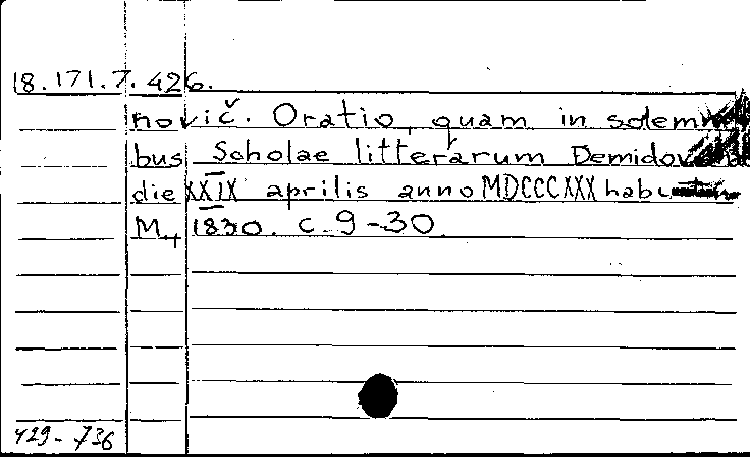 18.171.7.426.
novič. Oratio, quam in solem
bus Scholae litterarum Demidov
die XXIX aprilis anno MDCCCXXX
M., 1830. c. 9-30.
429-736